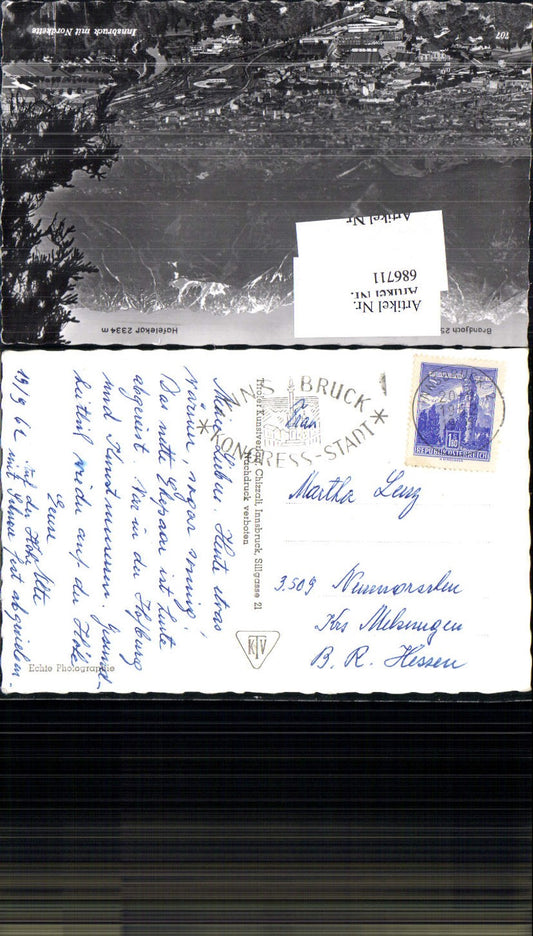 Innsbruck mit Nordkette
707
Artikel Nr.
686711
Artikel Nr.
Artikel Nr.
Hafelekar 2334 m
Brandjoch 25
INNSBRUCK
*KONGRESS-STADT*
REPUBLIK ÖSTERREICH
Tiroler Kunstverlag Chizzali, Innsbruck, Sillgasse 21
Nachdruck verboten
KTV
Echte Photographie
Frau
Martha Lenz
3.509 Neumorschen
Krs Melsungen
B. R. Hessen
19/9 62
Meine Lieben. Heute etwas
wärmer, sogar sonnig!
Das nette Ehepaar ist heute
abgereist. Wir in der Hofburg
und Kunstmuseum. Jesund
wieder auf der Höhe
auf der Höh.